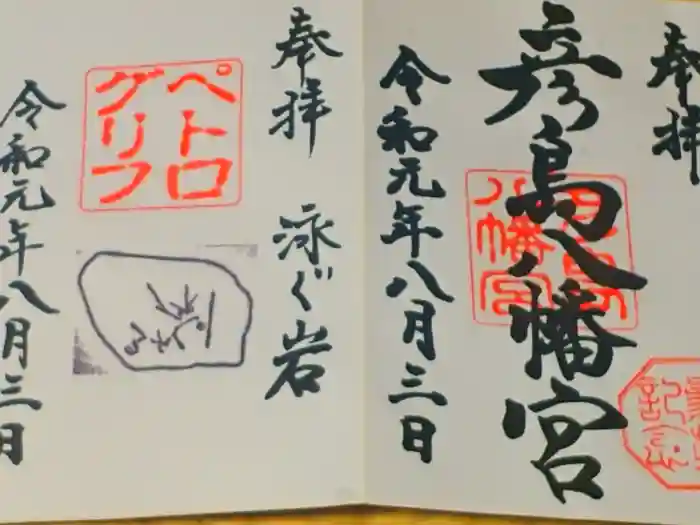 奉拝
彦島八幡宮
彦島八幡宮
令和元年八月三日
奉拝 泳ぐ岩
ペトロ
グリフ
令和元年八月三日